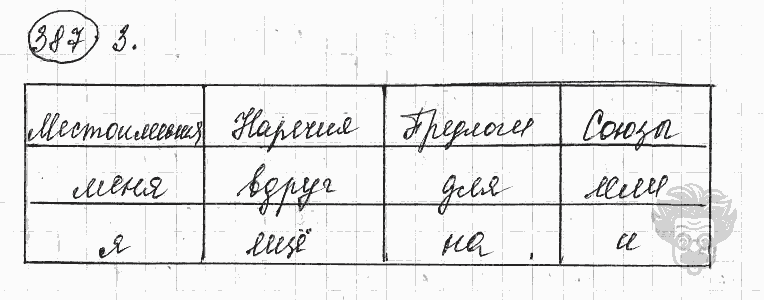 387 3.
Местоимения Наречия Предлоги Союзы
меня вдруг для или
я ещё на и